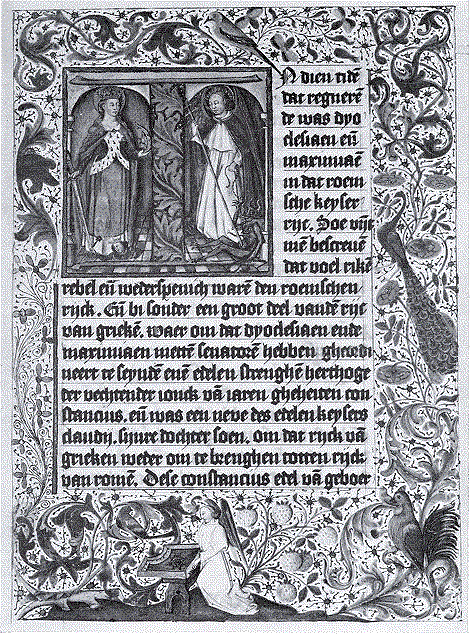 N dien tidē
dat regnerē
de was dyo
clesiaen eñ
maximiaē
in dat roem
sche keyser
rije. Soe vijt
mē bescreuē
dat voel rikē
rebel eñ wederspenich warē den roemschen
rijck. Eñ bisonder een groot deel vandē rijc
van griekē. waer om dat dyoclesiaen ende
maximiaen mettē senatorē hebben gheordi
neert te seynden enē etelen strenghē herthoge
der vechtender ionck vā iaren gheheiten con
stancius. eñ was een neve des etelen keysers
claudij. sijnre dochter soen. om dat rijck vā
grieken weder om te brenghen totten rijck
van romē. Dese constancius etel vā geboer